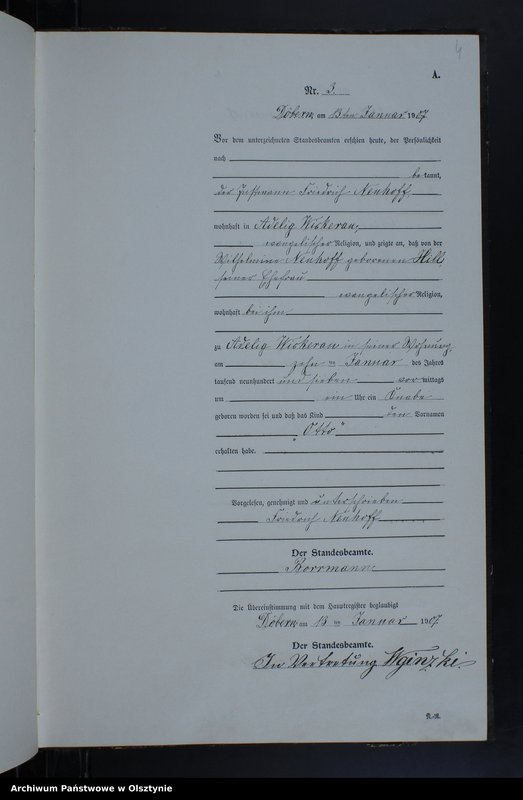 4
A.
Nr. 3.
Döbern, am 13ten Januar 1907
Vor dem unterzeichneten Standesbeamten erschien heute, der Persönlichkeit
nach
be kannt,
der Instmann Friedrich Neuhoff
wohnhaft in Adelig Wiskerau,
evangelischer Religion, und zeigte an, daß von der
Wilhelmine Neuhoff geborenen Hell,
seiner Ehefrau
evangelischer Religion,
wohnhaft bei ihm
zu Adelig Wiskerau in seiner Wohnung,
am zehn ten Januar des Jahres
tausend neunhundert und sieben vor mittags
um ein Uhr ein Knabe
geboren worden sei und daß das Kind den Vornamen
„Otto“
erhalten habe.
Vorgelesen, genehmigt und unterschrieben
Friedrich Neuhoff
Der Standesbeamte.
Borrmann.
Die Übereinstimmung mit dem Hauptregister beglaubigt
Döbern, am 13 ten Januar 1907.
Der Standesbeamte.
In Vertretung
Archiwum Państwowe w Olsztynie